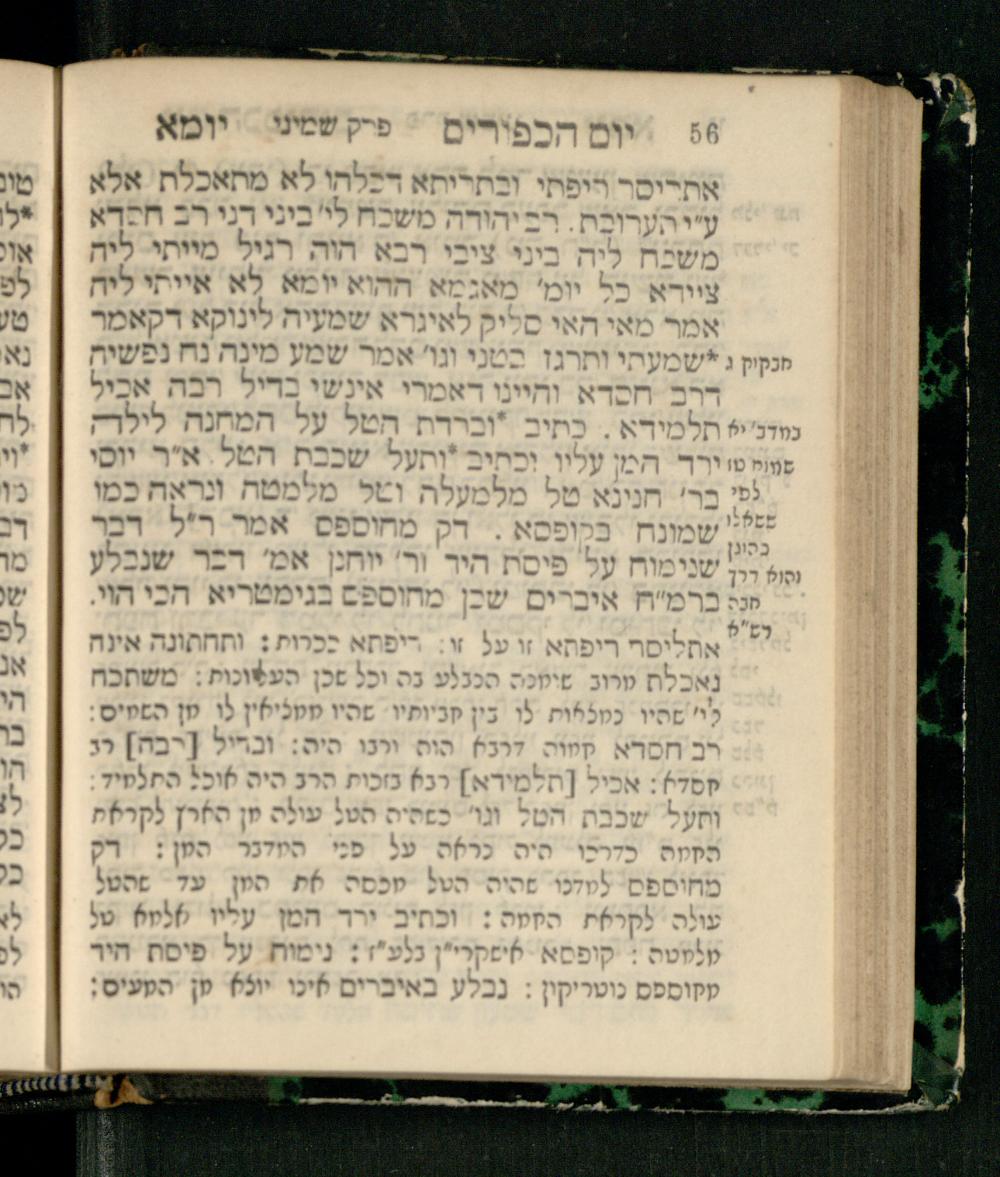 56 יום הכפורים פרק שמיני יומא
אתריסר ריפתי ובתריתא דכלהו לא מתאכלת אלא
ע״י תערובת. רב יהודה משכח לי׳ ביני דני רב חסדא
משכח ליה ביני ציבי רבא הוה רגיל מייתי ליה
ציירא כל יומ׳ מאגמא ההוא יומא לא אייתי ליה
אמר מאי האי סליק לאיגרא שמעיה לינוקא דקאמר
חבקוק ג *שמעתי ותרגז בטני וגו׳ אמר שמע מינה נח נפשיה
דרב חסדא והיינו דאמרי אינשי בדיל רבה אכיל
במדב׳ יא תלמידא. כתיב *וברדת הטל על המחנה לילה
שמות טז ירד המן עליו וכתיב *ותעל שכבת הטל א״ר יוסי
לפי בר׳ חנינא טל מלמעלה וטל מלמטה ונראה כמו
ששאלו שמונח בקופסא. דק מחוספס אמר ר״ל דבר
כהוגן שנימוח על פיסת היד ור׳ יוחנן אמ׳ דבר שנבלע
והוא דרך
חבה ברמ״ח איברים שכן מחוספס בגימטריא הכי הוי.
רש״א
אתליסר ריפתא זו על זו: ריפתא ככרות: ותחתונה אינה
נאכלת מרוב שימנה הנבלע בה וכל שכן העליונות: משתכח
לי׳ שהיו נמלאות לו בין חביותיו שהיו ממליאין לו מן השמים:
רב חסדא חמוה דרבא הוה ורבו היה: ובדיל [רבה] רב
חסדא: אכיל [תלמידא] רבא בזכות הרב היה אוכל התלמיד:
ותעל שכבת הטל וגו׳ כשהיה הטל עולה מן הארץ לקראת
החמה כדרכו היה נראה על פני המדבר המן: דק
מחוספס למדנו שהיה הטל מכסה את המן עד שהטל
עולה לקראת החמה: וכתיב ירד המן עליו אלמא טל
מלמטה: קופסא אישקרי״ן בלע״ז: נימוח על פיסת היד
מחוספס נוטריקון: נבלע באיברים אינו יוצא מן המעים: